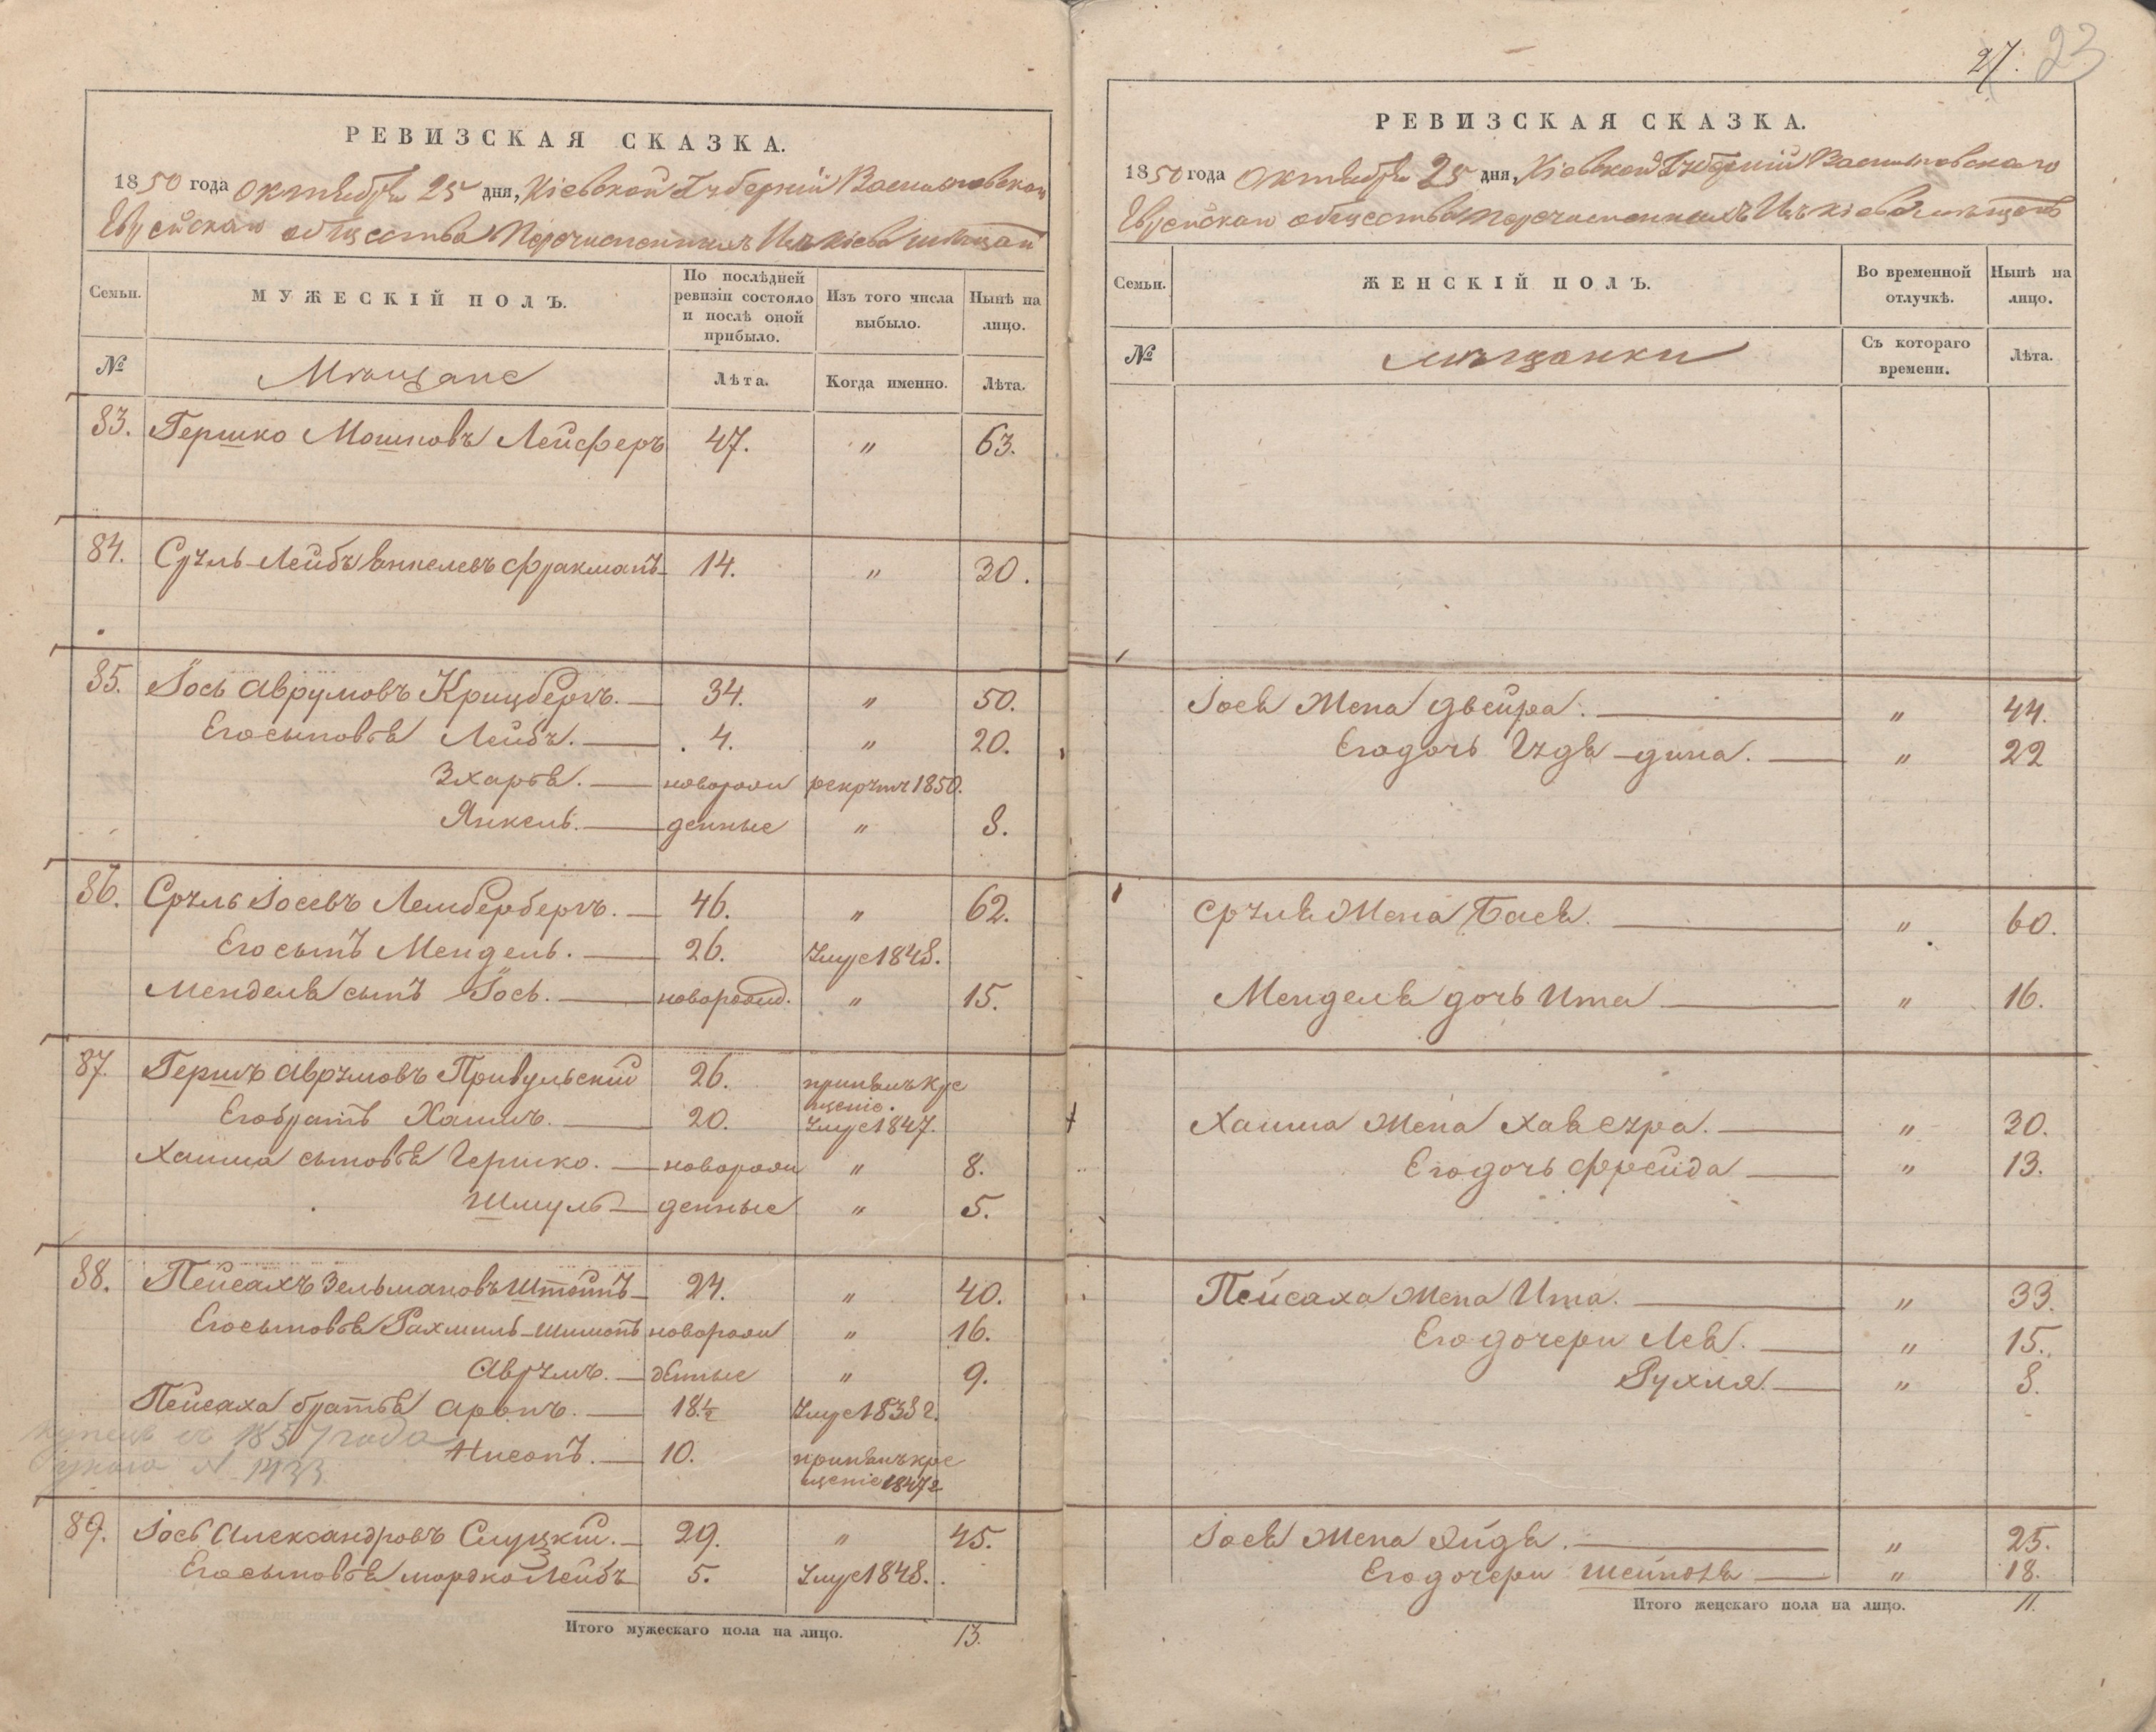 РЕВИЗСКАЯ СКАЗКА.
1850 года Октября 25 дня, Кіевской Губерніи Васильковскаго
Еврейскаго общества Перечисленныхъ Изъ Кіева мѣщанъ
Семьи.
МУЖЕСКІЙ ПОЛЪ.
По послѣдней ревизіи состояло и послѣ оной прибыло.
Изъ того числа выбыло.
Нынѣ на лицо.
№
Мѣщане
Лѣта.
Когда именно.
Лѣта.
83. Гершко Мошковъ Лейферъ 47. " 63.
84. Сруль-Лейбъ Янкелевъ Фракманъ 14. " 30.
85. Іось Аврумовъ Крицбергъ. 34. " 50.
Его сыновья Лейбъ. 4. " 20.
Зхарья. новорож рекрутъ 1850.
Янкель. денные " 8.
86. Сруль Іосевъ Лембербергъ. 46. " 62.
Его сынъ Мендель. 26. Умре 1848.
Менделя сынъ Іось. новорожд. " 15.
87. Гершъ Аврумовъ Привульскій 26. принялъ кре
щеніе.
Его братъ Хаимъ. 20. Умре 1847.
Хаима сыновья Гершко. новорож " 8.
Шмуль денные " 5.
88. Пейсахъ Зельмановъ 24. " 40.
Его сыновья Рахмиль-Шимонъ новорож " 16.
Аврумъ. денные " 9.
Пейсаха братья Аронъ. 18½ Умре 1838 г.
Нисонъ. 10. принялъ кре
щеніе 1847 г
купецъ съ 1857 года
89. Іось Александровъ Слуцкій. 29. " 45.
Его сыновья Мордко Лейбъ 5. Умре 1848.
Итого мужескаго пола на лицо. 13.
27. 23
РЕВИЗСКАЯ СКАЗКА.
1850 года Октября 25 дня, Кіевской Губерніи Васильковскаго
Еврейскаго общества Перечисленныхъ Изъ Кіева мѣщанъ
Семьи.
ЖЕНСКІЙ ПОЛЪ.
Во временной отлучкѣ.
Нынѣ на лицо.
№
Мѣщанки
Съ котораго времени.
Лѣта.
Іося Жена Двейра. " 44.
Его дочь Гудя-Дина. " 22
Сруля Жена Бася. " 60.
Менделя дочь Ита " 16.
Хаима Жена Хая Сура. " 30.
Его дочь Фрейда " 13.
Пейсаха Жена Ита. " 33.
Его дочери Лея. " 15.
Рухля. " 8.
Іося Жена Эйдя. " 25.
Его дочери Шейндля " 18.
Итого женскаго пола на лицо. 11.